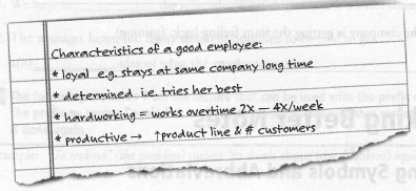 Characteristics of a good employee:
* loyal e.g. stays at same company long time
* determined i.e. tries her best
* hardworking = works overtime 2X — 4X/week
* productive → ↑product line & # customers